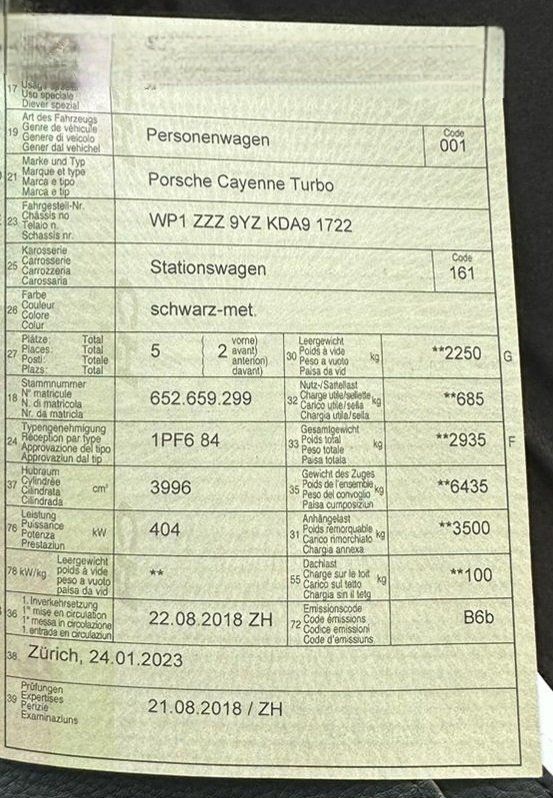 17 Usage spécial
Uso speciale
Diever spezial
19 Art des Fahrzeugs
Genre de véhicule
Genere di veicolo
Gener dal vehichel
Personenwagen
Code
001
21 Marke und Typ
Marque et type
Marca e tipo
Marca e tip
Porsche Cayenne Turbo
23 Fahrgestell-Nr.
Châssis no
Telaio n.
Schassis nr.
WP1 ZZZ 9YZ KDA9 1722
25 Karosserie
Carrosserie
Carrozzeria
Carossaria
Stationswagen
Code
161
26 Farbe
Couleur
Colore
Colur
schwarz-met.
27 Plätze: Total
Places: Total
Posti: Totale
Plazs: Total
5
2 vorne)
avant)
anteriori)
davant)
30 Leergewicht
Poids à vide
Peso a vuoto
Paisa da vid
kg
**2250 G
18 Stammnummer
N° matricule
N. di matricola
Nr. da matricla
652.659.299
32 Nutz-/Sattellast
Charge utile/sellette
Carico utile/sella
Chargia utila/sella
kg
**685
24 Typengenehmigung
Réception par type
Approvazione del tipo
Approvaziun dal tip
1PF6 84
33 Gesamtgewicht
Poids total
Peso totale
Paisa totala
kg
**2935 F
37 Hubraum
Cylindrée
Cilindrata
Cilindrada
cm³
3996
35 Gewicht des Zuges
Poids de l'ensemble
Peso del convoglio
Paisa cumposiziun
kg
**6435
76 Leistung
Puissance
Potenza
Prestaziun
kW
404
31 Anhängelast
Poids remorquable
Carico rimorchiato
Chargia annexa
kg
**3500
78 kW/kg Leergewicht
poids à vide
peso a vuoto
paisa da vid
**
55 Dachlast
Charge sur le toit
Carico sul tetto
Chargia sin il tetg
kg
**100
36 1. Inverkehrsetzung
1re mise en circulation
1a messa in circolazione
1. entrada en circulaziun
22.08.2018 ZH
72 Emissionscode
Code émissions
Codice emissioni
Code d'emissiuns
B6b
38 Zürich, 24.01.2023
39 Prüfungen
Expertises
Perizie
Examinaziuns
21.08.2018 / ZH